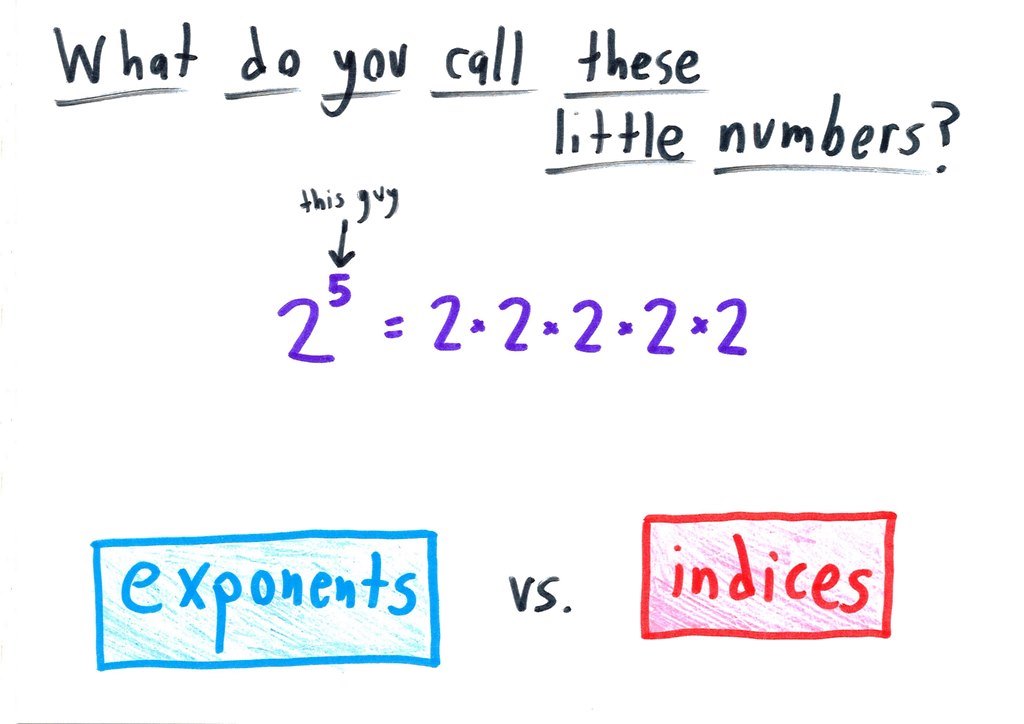 What do you call these
little numbers?
this guy
2⁵ = 2 · 2 · 2 · 2 · 2
exponents vs. indices